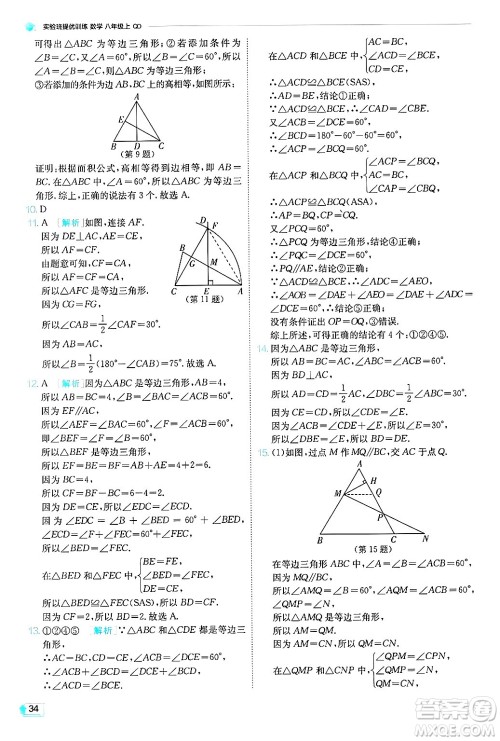 实验班提优训练 数学 八年级上
可得出△ABC 为等边三角形;②若添加条件为
∠B=∠C,又∠A=60°,则△ABC 为等边三角形;
③若添加的条件为边 AB,BC 上的高相等,如图,
A
E
B
D
C
(第9题)
证明:根据面积公式,高相等的边也等,所以 AB=
BC.在△ABC 中,∠A=60°,所以△ABC 为等边三
角形.综上,正确的说法有3个.故选 A.
10. D
11. A [解析]如图,连接 AF.
因为 DE⊥AC,AE=EC,
所以 AF=CF.
由题意可知,AC=CF.
所以△AFC 是等边三角形.
因为 CG=FG,
所以∠CAB=1/2∠CAF=30°.
所以∠B=1/2(180°-∠CAB)=75°.故选 A.
D
F
B
G
C
E
A
(第11题)
12. A [解析]因为△ABC 是等边三角形,AB=4,
所以 BC=AB=4,∠ABC=∠BAC=60°.
因为 EF∥AC,
所以∠EFB=∠BAC=60°,∠EBF=∠ABC=60°,
即∠BEF=∠EBF=∠EFB=60°.
所以△BEF 是等边三角形.
所以 EF=BE=BF=AB+AF=4+2=6.
因为 BC=4,
所以 CF=BC=4.
因为 DE=CE,所以∠EDC=∠ECD.
因为∠EDC=∠EBC+∠BED=60°+∠BED,
∠ECD=∠EFC+∠FEC=60°+∠FEC,
所以∠BED=∠FEC.
在△BED 和△FEC 中,
BE=FE,
∠BED=∠FEC,
DE=CE,
所以△BED≌△FEC(SAS),所以 BD=CF=4.
13. ①②④⑤ [解析]∵△ABC 和△CDE 都是等边三角形,
∴AC=BC,CD=CE,∠ACB=∠DCE=60°.
∴∠ACB+∠BCD=∠DCE+∠BCD,
即∠ACD=∠BCE.
在△ACD 和△BCE 中,
AC=BC,
∠ACD=∠BCE,
CD=CE,
∴△ACD≌△BCE(SAS).
∴AD=BE,结论①正确.
∵△ACD≌△BCE,∴∠CAD=∠CBE.
又∠ACB=∠DCE=60°,
∴∠BCD=180°-60°-60°=60°.
∴∠ACP=∠BCQ=60°.
在△ACP 和△BCQ 中,
∠ACP=∠BCQ,
AC=BC,
∠CAP=∠CBQ,
∴△ACP≌△BCQ(ASA).
∴AP=BQ,结论④正确.
∴PC=QC.又∠PCQ=60°,
∴△PCQ 为等边三角形.
∴∠PQC=∠DCE=60°.
∴PQ∥AE,结论②正确.
∵∠AOB=∠ADC+∠AEO,
∴∠AOB=60°.结论⑤正确.
没有条件证出 OP=OQ,③错误.
综上所述,可得正确的结论有4个:①②④⑤.
14. 因为△ABC 是等边三角形,D 是 AC 的中点,
所以 AD=CD=1/2AC,∠DBC=1/2∠ABC=30°.
因为 CE=CD,所以∠CDE=∠CED=30°.
所以∠DBC=∠CED.所以 BD=DE.
15. (1)如图,过点 M 作 MQ∥BC,交 AC 于点 Q.
A
H
M
Q
P
B
C
N
(第15题)
在等边三角形 ABC 中,∠A=∠B=∠ACB=60°.
因为 MQ∥BC,
所以∠AMQ=∠B=60°,∠AQM=∠ACB=60°,
∠QMP=∠N.
所以△AMQ 是等边三角形.
所以 AM=QM.
因为 AM=CN,所以 QM=CN.
在△QMP 和△CNP 中,
∠QPM=∠CPN,
∠QMP=∠N,
QM=CN,
34